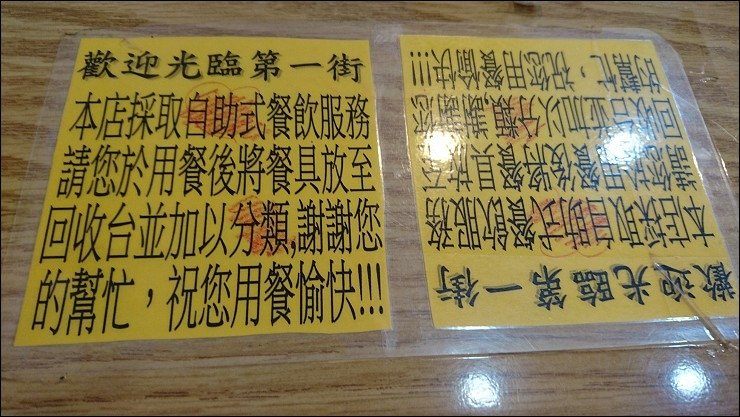 歡迎光臨第一街
本店採取自助式餐飲服務
請您於用餐後將餐具放至
回收台並加以分類,謝謝您
的幫忙，祝您用餐愉快!!!
歡迎光臨第一街
本店採取自助式餐飲服務
請您於用餐後將餐具放至
回收台並加以分類,謝謝您
的幫忙，祝您用餐愉快!!!